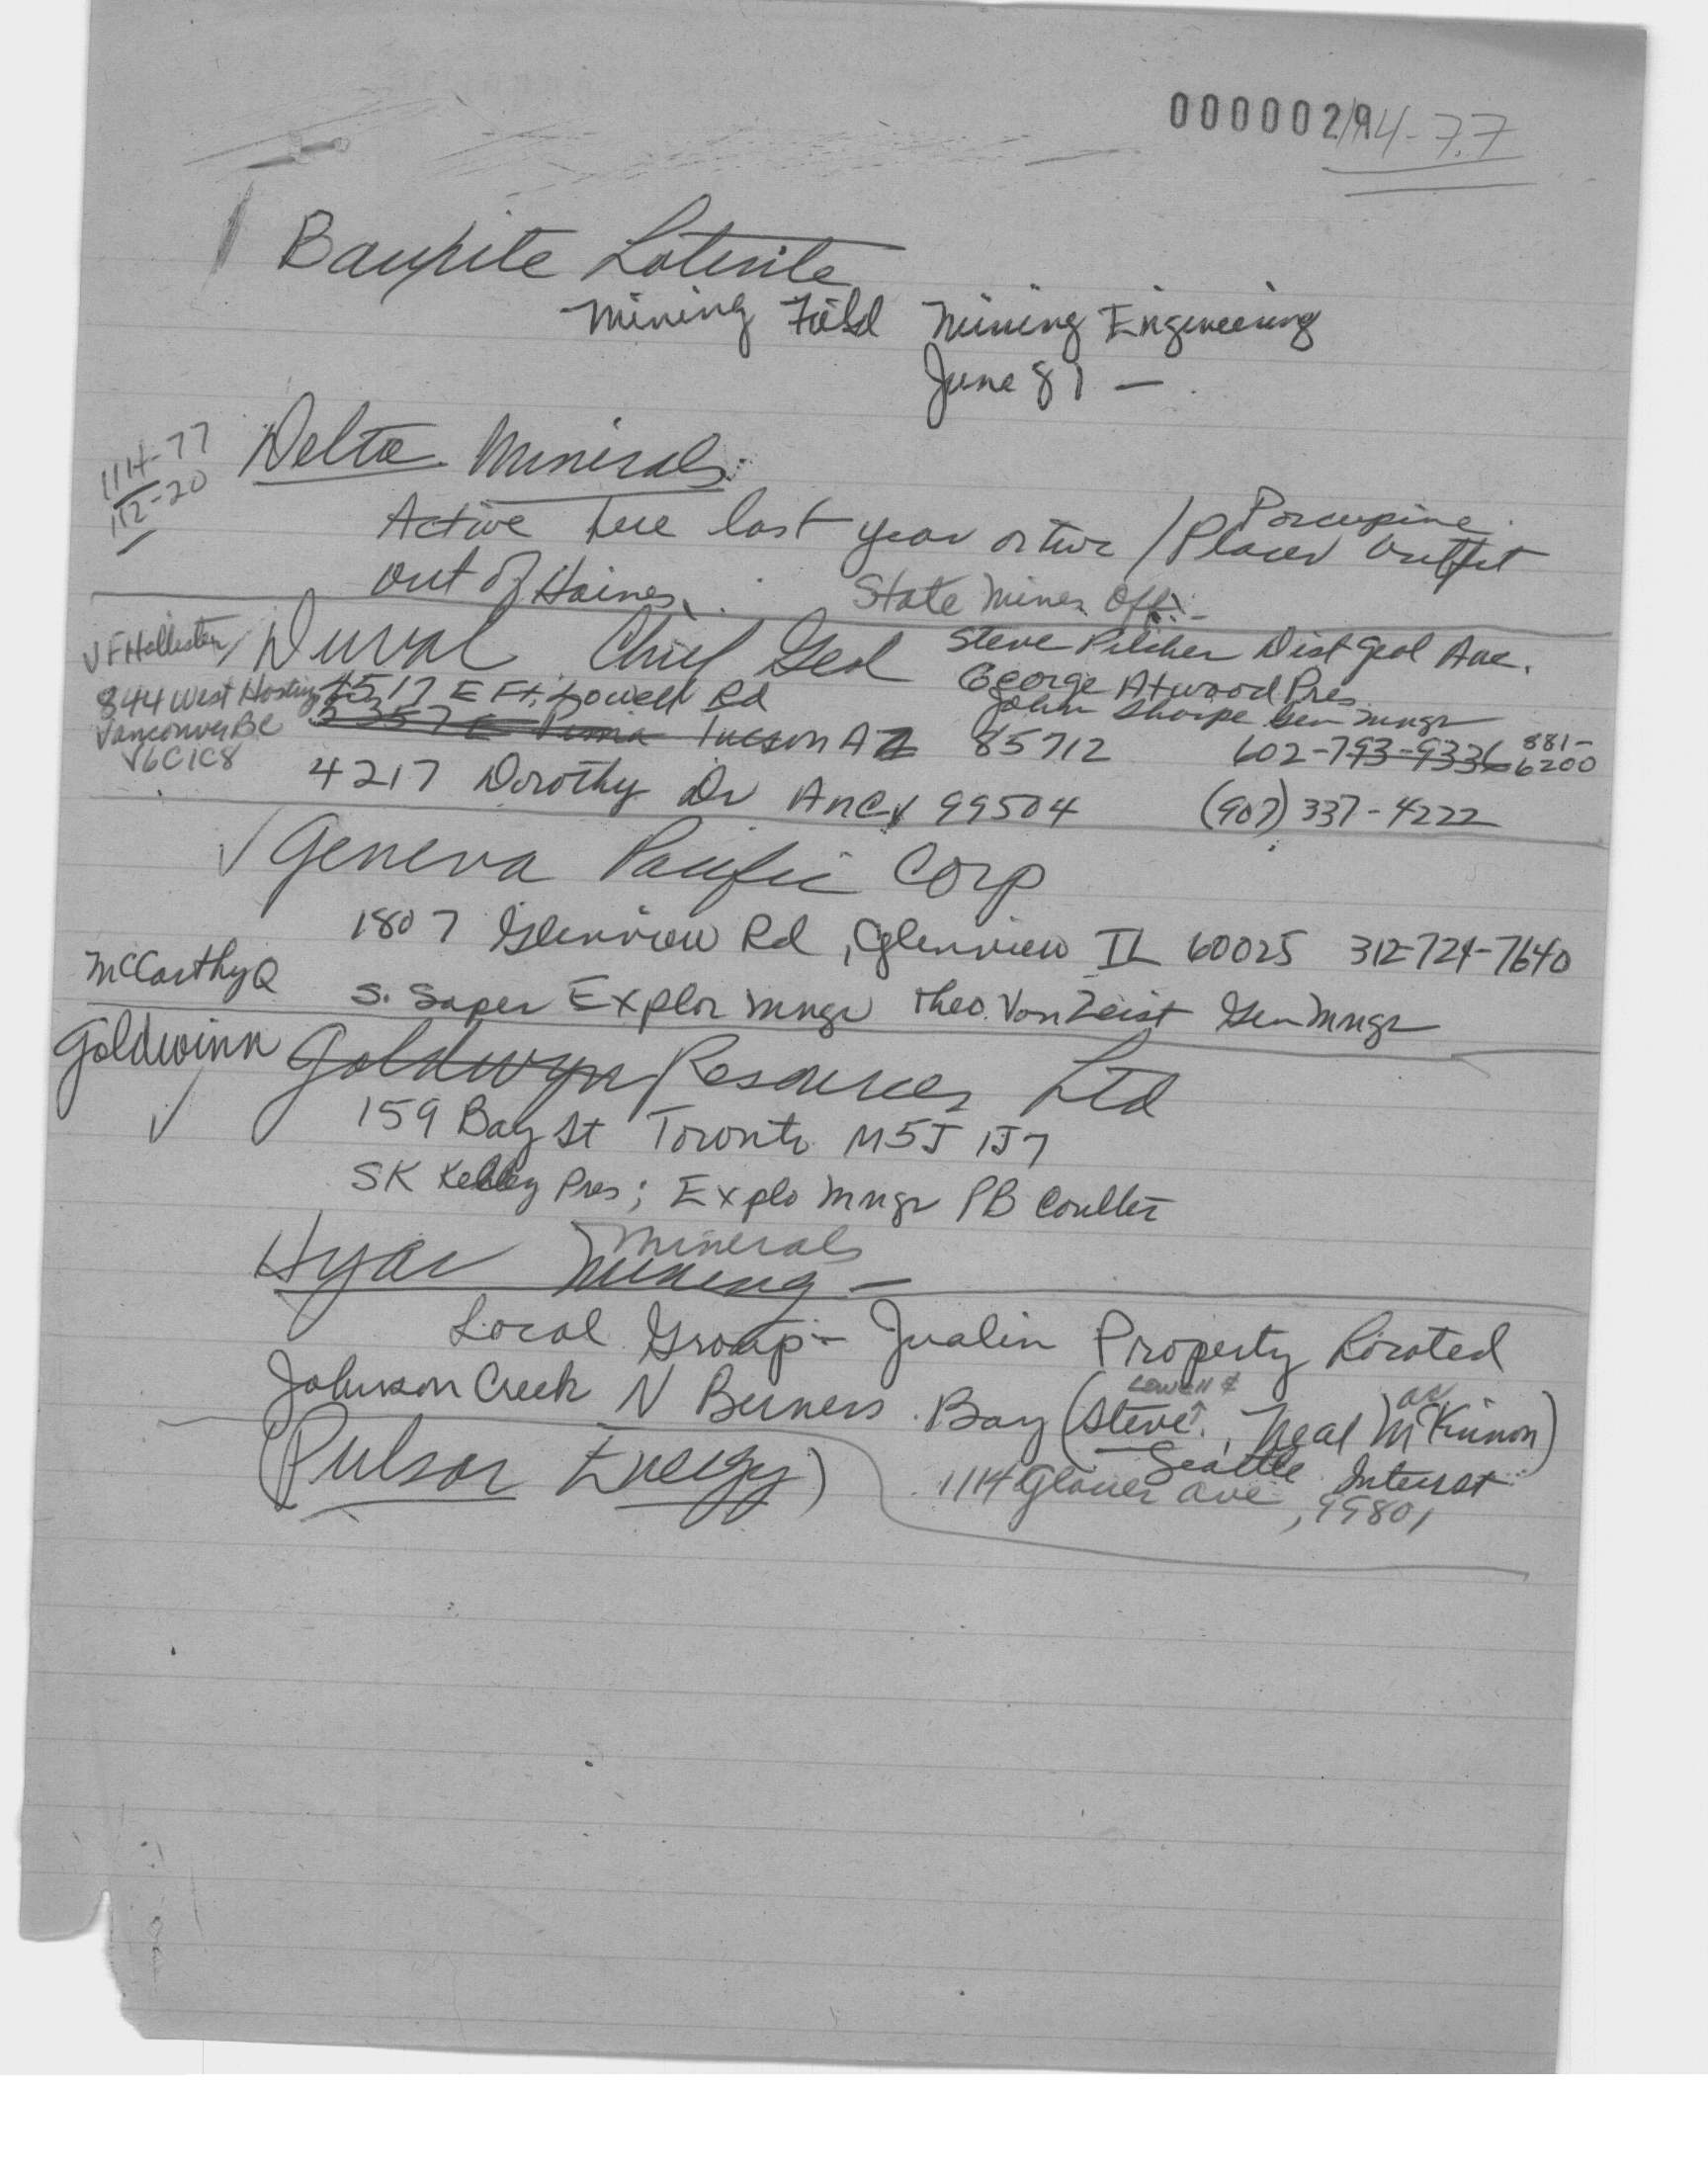 00000294-77
Bauxite Laterite
Mining Field Mining Engineering
June 81 —
1114-77
112-20
Delta Minerals
Active here last year or two / Porcupine
Placer Outfit
out of Haines. State Mines Off.
Duval Chief Geol Steve Pilcher Dist Geol Anc.
VF Hollister
George Atwood Pres
John Sharpe Gen Mngr
844 West Hastings
Vancouver BC
V6C1C8
4517 E Ft. Lowell Rd
Tucson AZ 85712 602-793-9336 881-6200
4217 Dorothy Dr Anc 99504 (907) 337-4222
✓ Geneva Pacific Corp
1807 Glenview Rd, Glenview IL 60025 312-724-7640
McCarthy Q
S. Saper Explor Mngr Theo. Van Zeist Gen Mngr
Goldwinn Goldwyn Resources Ltd
✓ 159 Bay St Toronto M5J 1J7
SK Kelley Pres; Explo Mngr PB Coulter
Hyak Minerals
Mining —
Local Group - Jualin Property Located
Johnson Creek N Berners Bay (Steve, Neal McKinnon)
Lowell &
(Pulsar Energy) Seattle Interest
1114 Glacier Ave, 99801